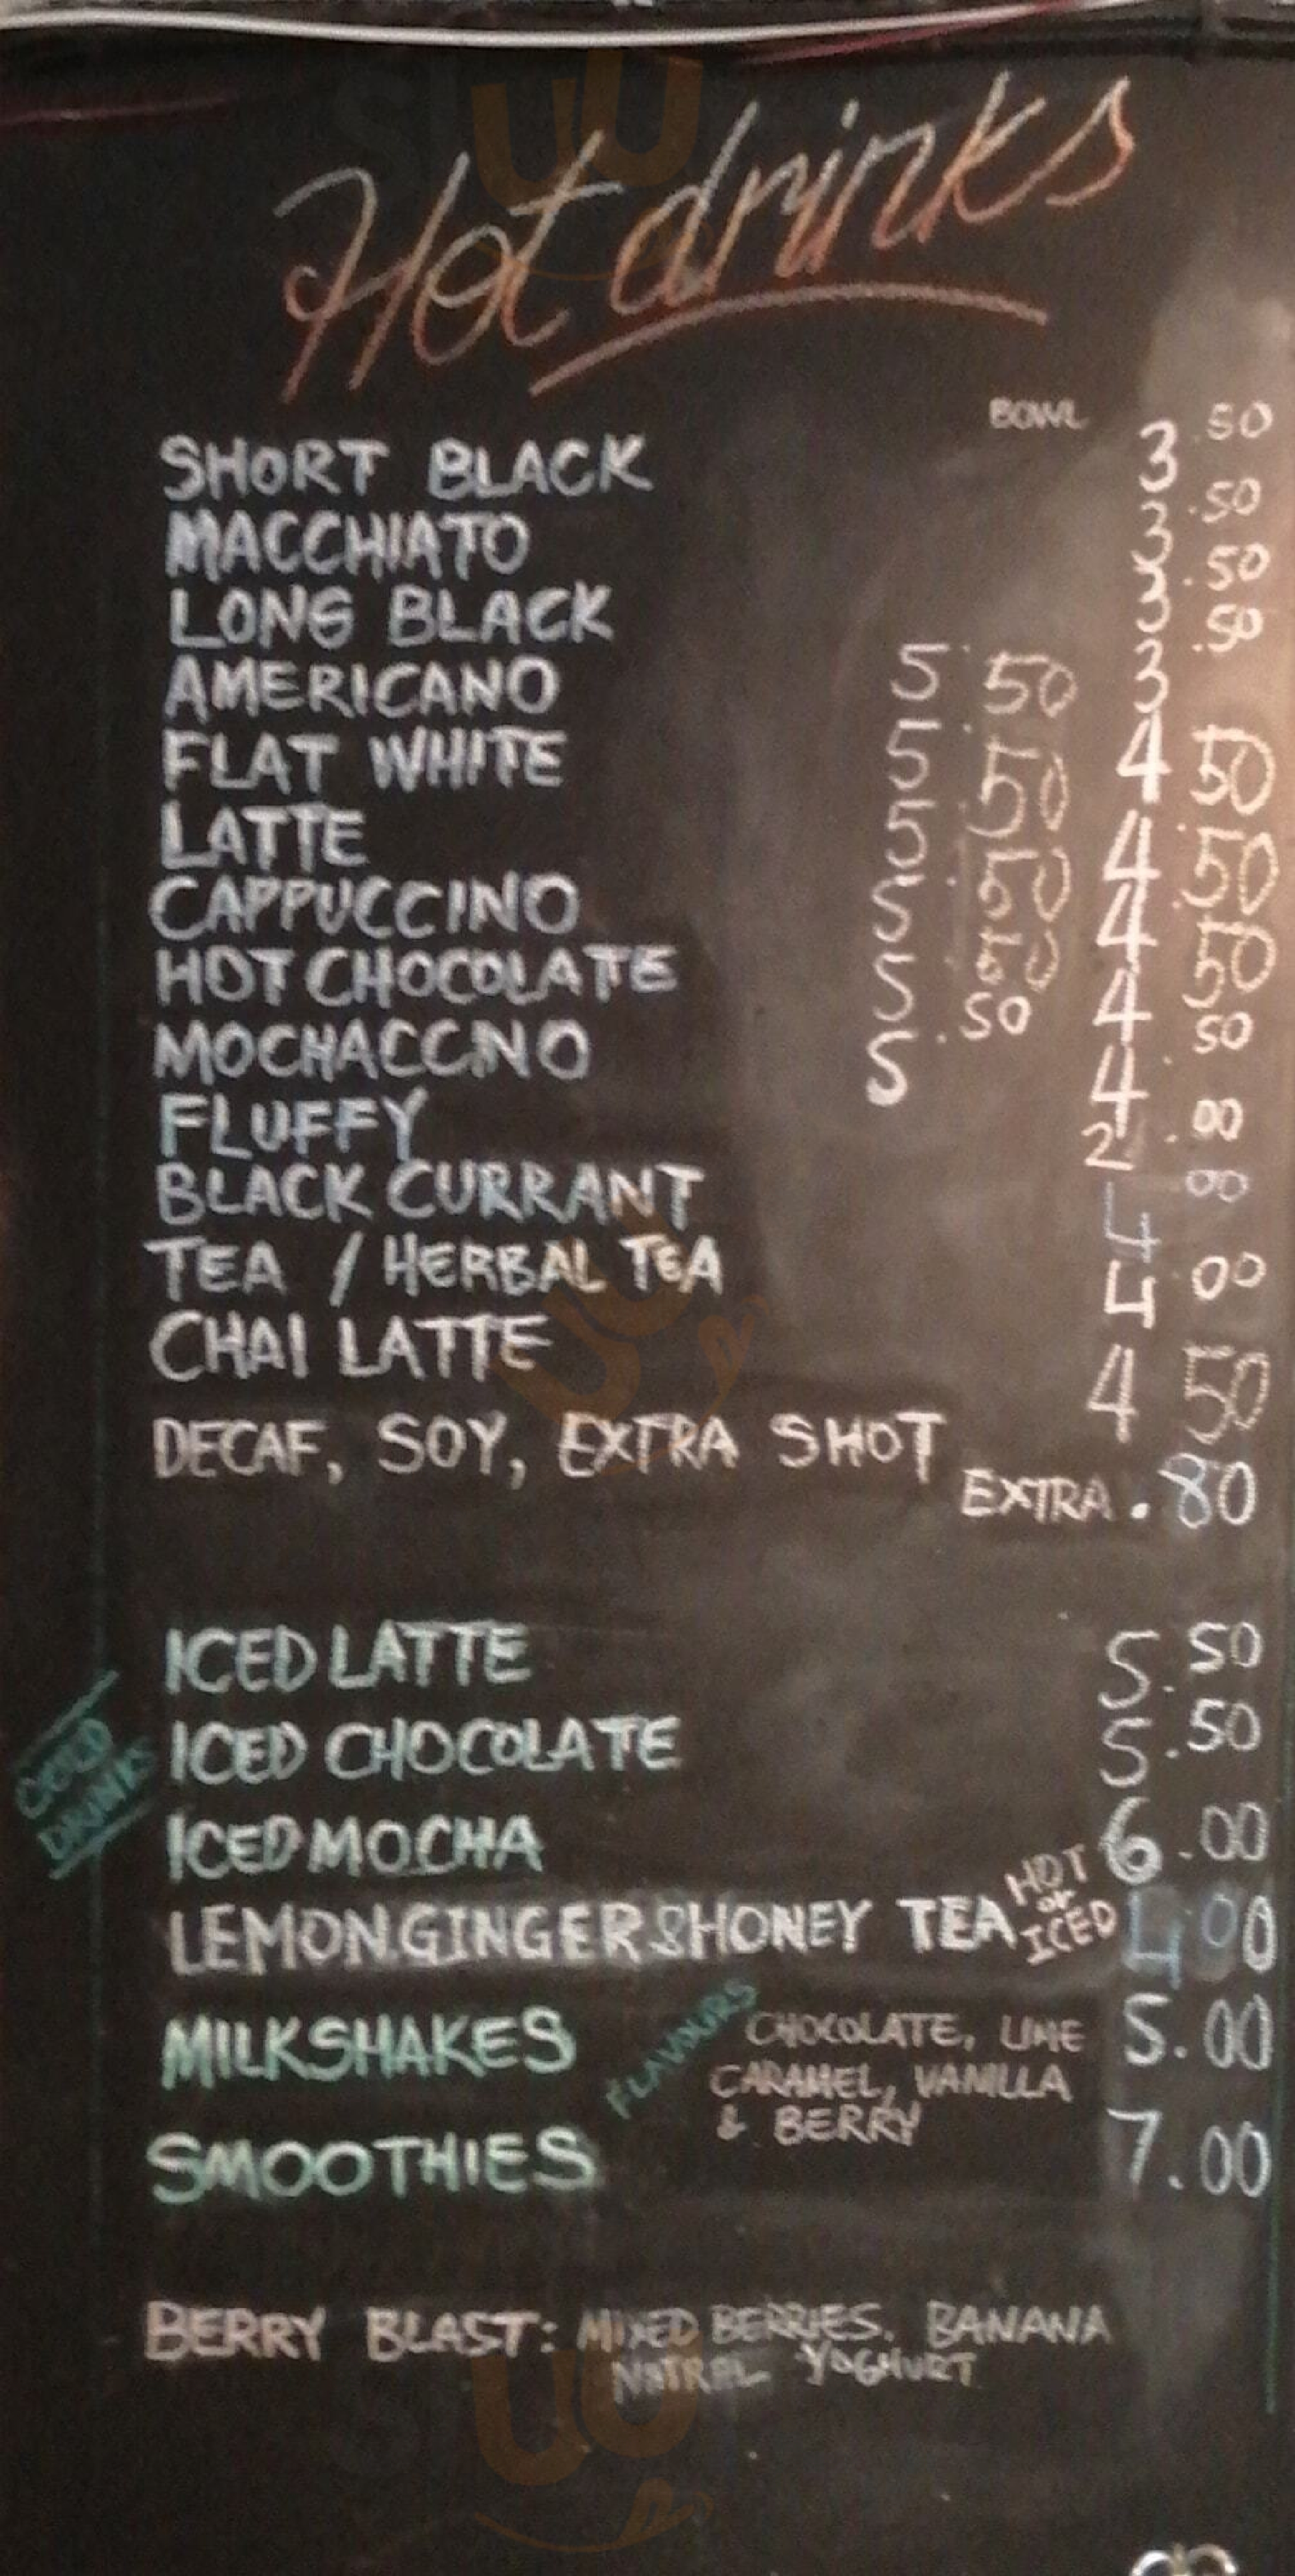 Hot drinks
BOWL
SHORT BLACK 3.50
MACCHIATO 3.50
LONG BLACK 3.50
AMERICANO 5.50 3.50
FLAT WHITE 5.50 4.50
LATTE 5.50 4.50
CAPPUCCINO 5.50 4.50
HOT CHOCOLATE 5.50 4.50
MOCHACCNO 5 4.
FLUFFY 2.00
BLACK CURRANT 4.00
TEA / HERBAL TEA 4.00
CHAI LATTE 4.50
DECAF, SOY, EXTRA SHOT
EXTRA .80
COLD DRINKS
ICED LATTE 5.50
ICED CHOCOLATE 5.50
ICED MOCHA 6.00
LEMON.GINGER & HONEY TEA HOT or ICED 4.00
MILKSHAKES FLAVOURS CHOCOLATE, LIME 5.00
CARAMEL, VANILLA
& BERRY
SMOOTHIES 7.00
BERRY BLAST: MIXED BERRIES. BANANA
NATRAL YOGHURT